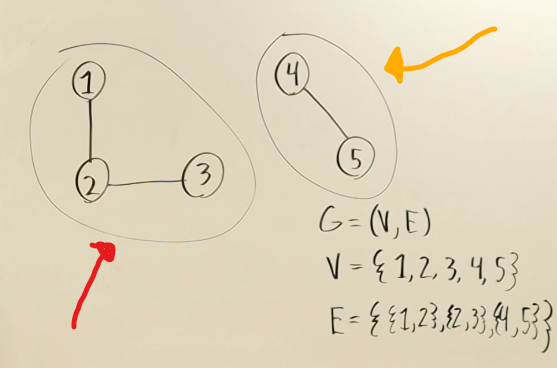 1
4
2
3
5
G = (V, E)
V = {1, 2, 3, 4, 5}
E = {{1, 2}, {2, 3}, {4, 5}}